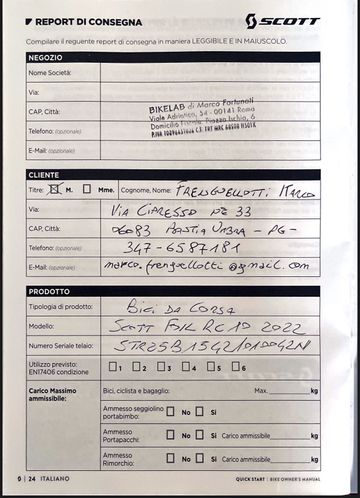 REPORT DI CONSEGNA
SCOTT
Compilare il reguente report di consegna in maniera LEGGIBILE E IN MAIUSCOLO.
NEGOZIO
Nome Società:
Via:
CAP, Città:
Telefono: (opzionale)
E-Mail: (opzionale)
BIKELAB di Marco Fortunati
Viale Adriatico, 54 - 00141 Roma
Domicilio Fiscale Piazza Ischia, 6
CLIENTE
Titre: M. Mme. Cognome, Nome: FRENGUELLOTTI MARCO
Via: VIA CIPRESSO N° 33
CAP, Città: 06083 BASTIA UMBRA - PG -
Telefono: (opzionale) 347-6587181
E-Mail: (opzionale) marco.frenguellotti@gmail.com
PRODOTTO
Tipologia di prodotto: BICI DA CORSA
Modello: SCOTT FOIL RC 10 2022
Numero Seriale telaio: STR25B15421010042N
Utilizzo previsto: EN17406 condizione 1 2 3 4 5 6
Carico Massimo ammissibile:
Bici, ciclista e bagaglio: Max. kg
Ammesso seggiolino portabimbo: No Si
Ammesso Portapacchi: No Si Carico ammissibile kg
Ammesso Rimorchio: No Si Carico ammissibile kg
9 | 24 ITALIANO
QUICK START | BIKE OWNER'S MANUAL